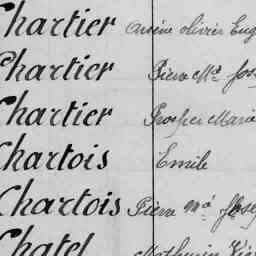 Chartier Arsène Olivier Eug
Chartier Pierre Me Jos
Chartier Prosper Marie
Chartois Emile
Chartois Pierre Me Josep
Chatel Mathurin